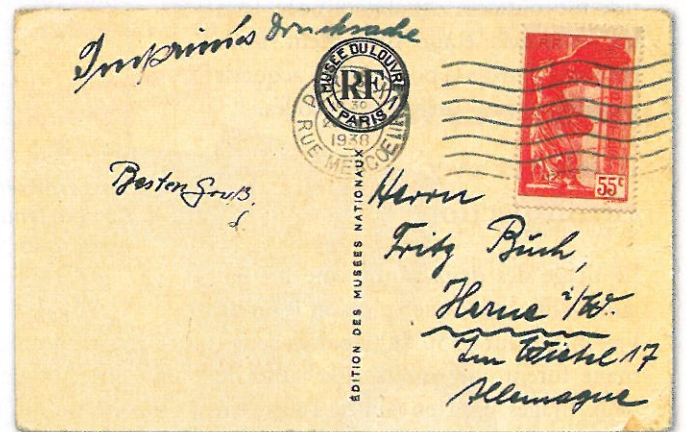 Imprimés Drucksache
MUSÉE DU LOUVRE
RF
PARIS
1938
RUE
RF
55c
Besten Gruß.
ÉDITION DES MUSÉES NATIONAUX
Herrn
Fritz Büch,
Herne i/W.
Im Wiehl 17
Allemagne